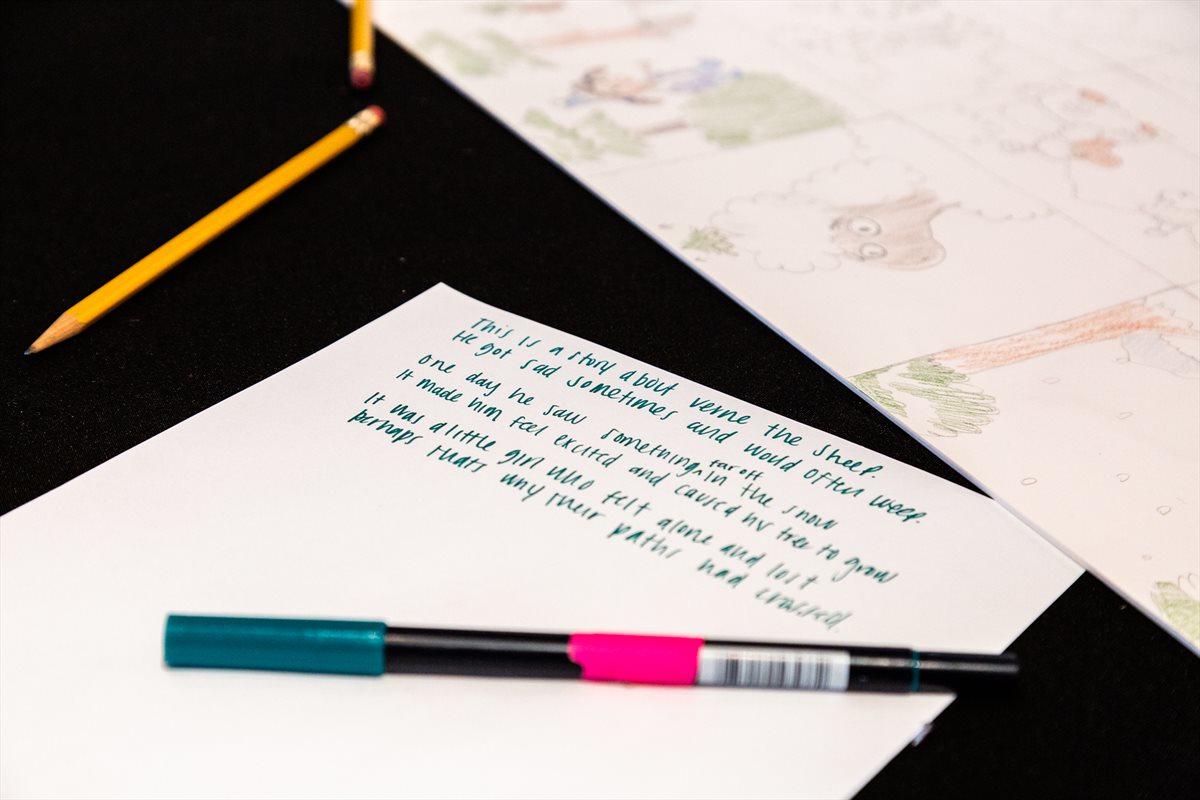 This is a story about verne the sheep.
He got sad sometimes and would often weep.
One day he saw something far off in the snow
It made him feel excited and caused his tree to grow
It was a little girl who felt alone and lost
perhaps that's why their paths had crossed.